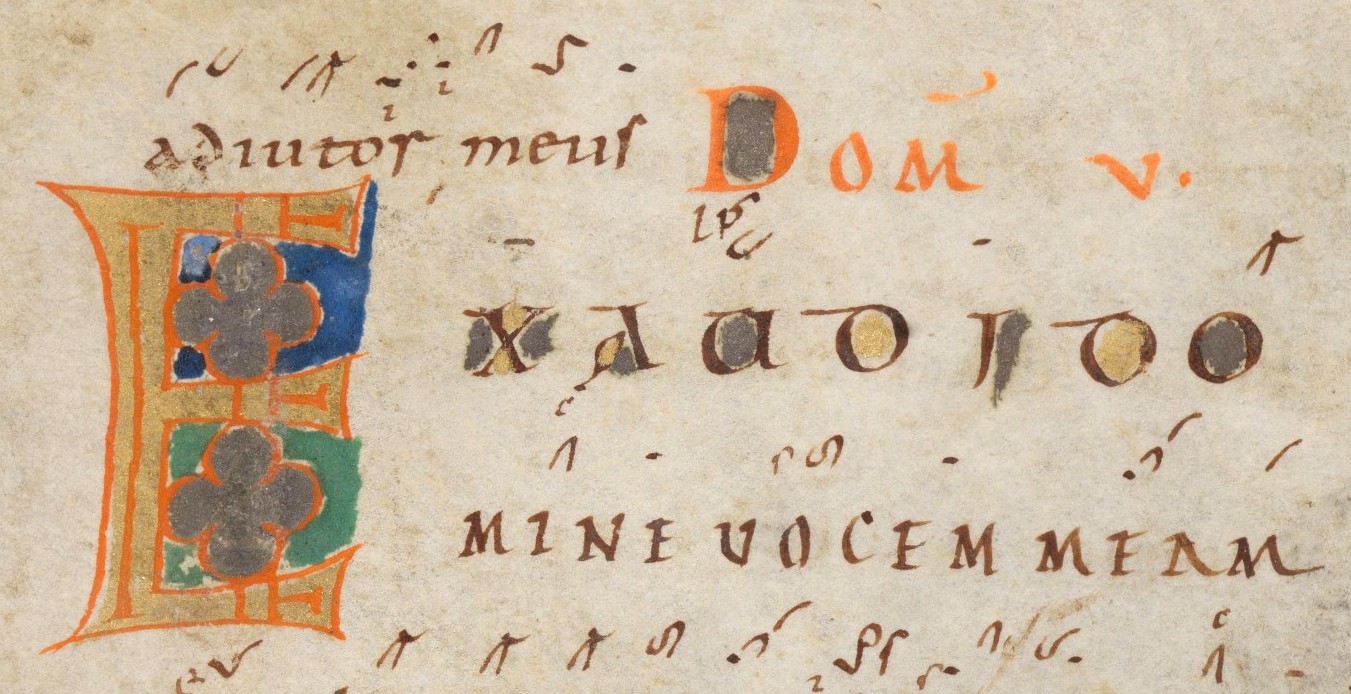 adiutor meus DOM V.
EXAUDI DO
MINE UOCEM MEAM